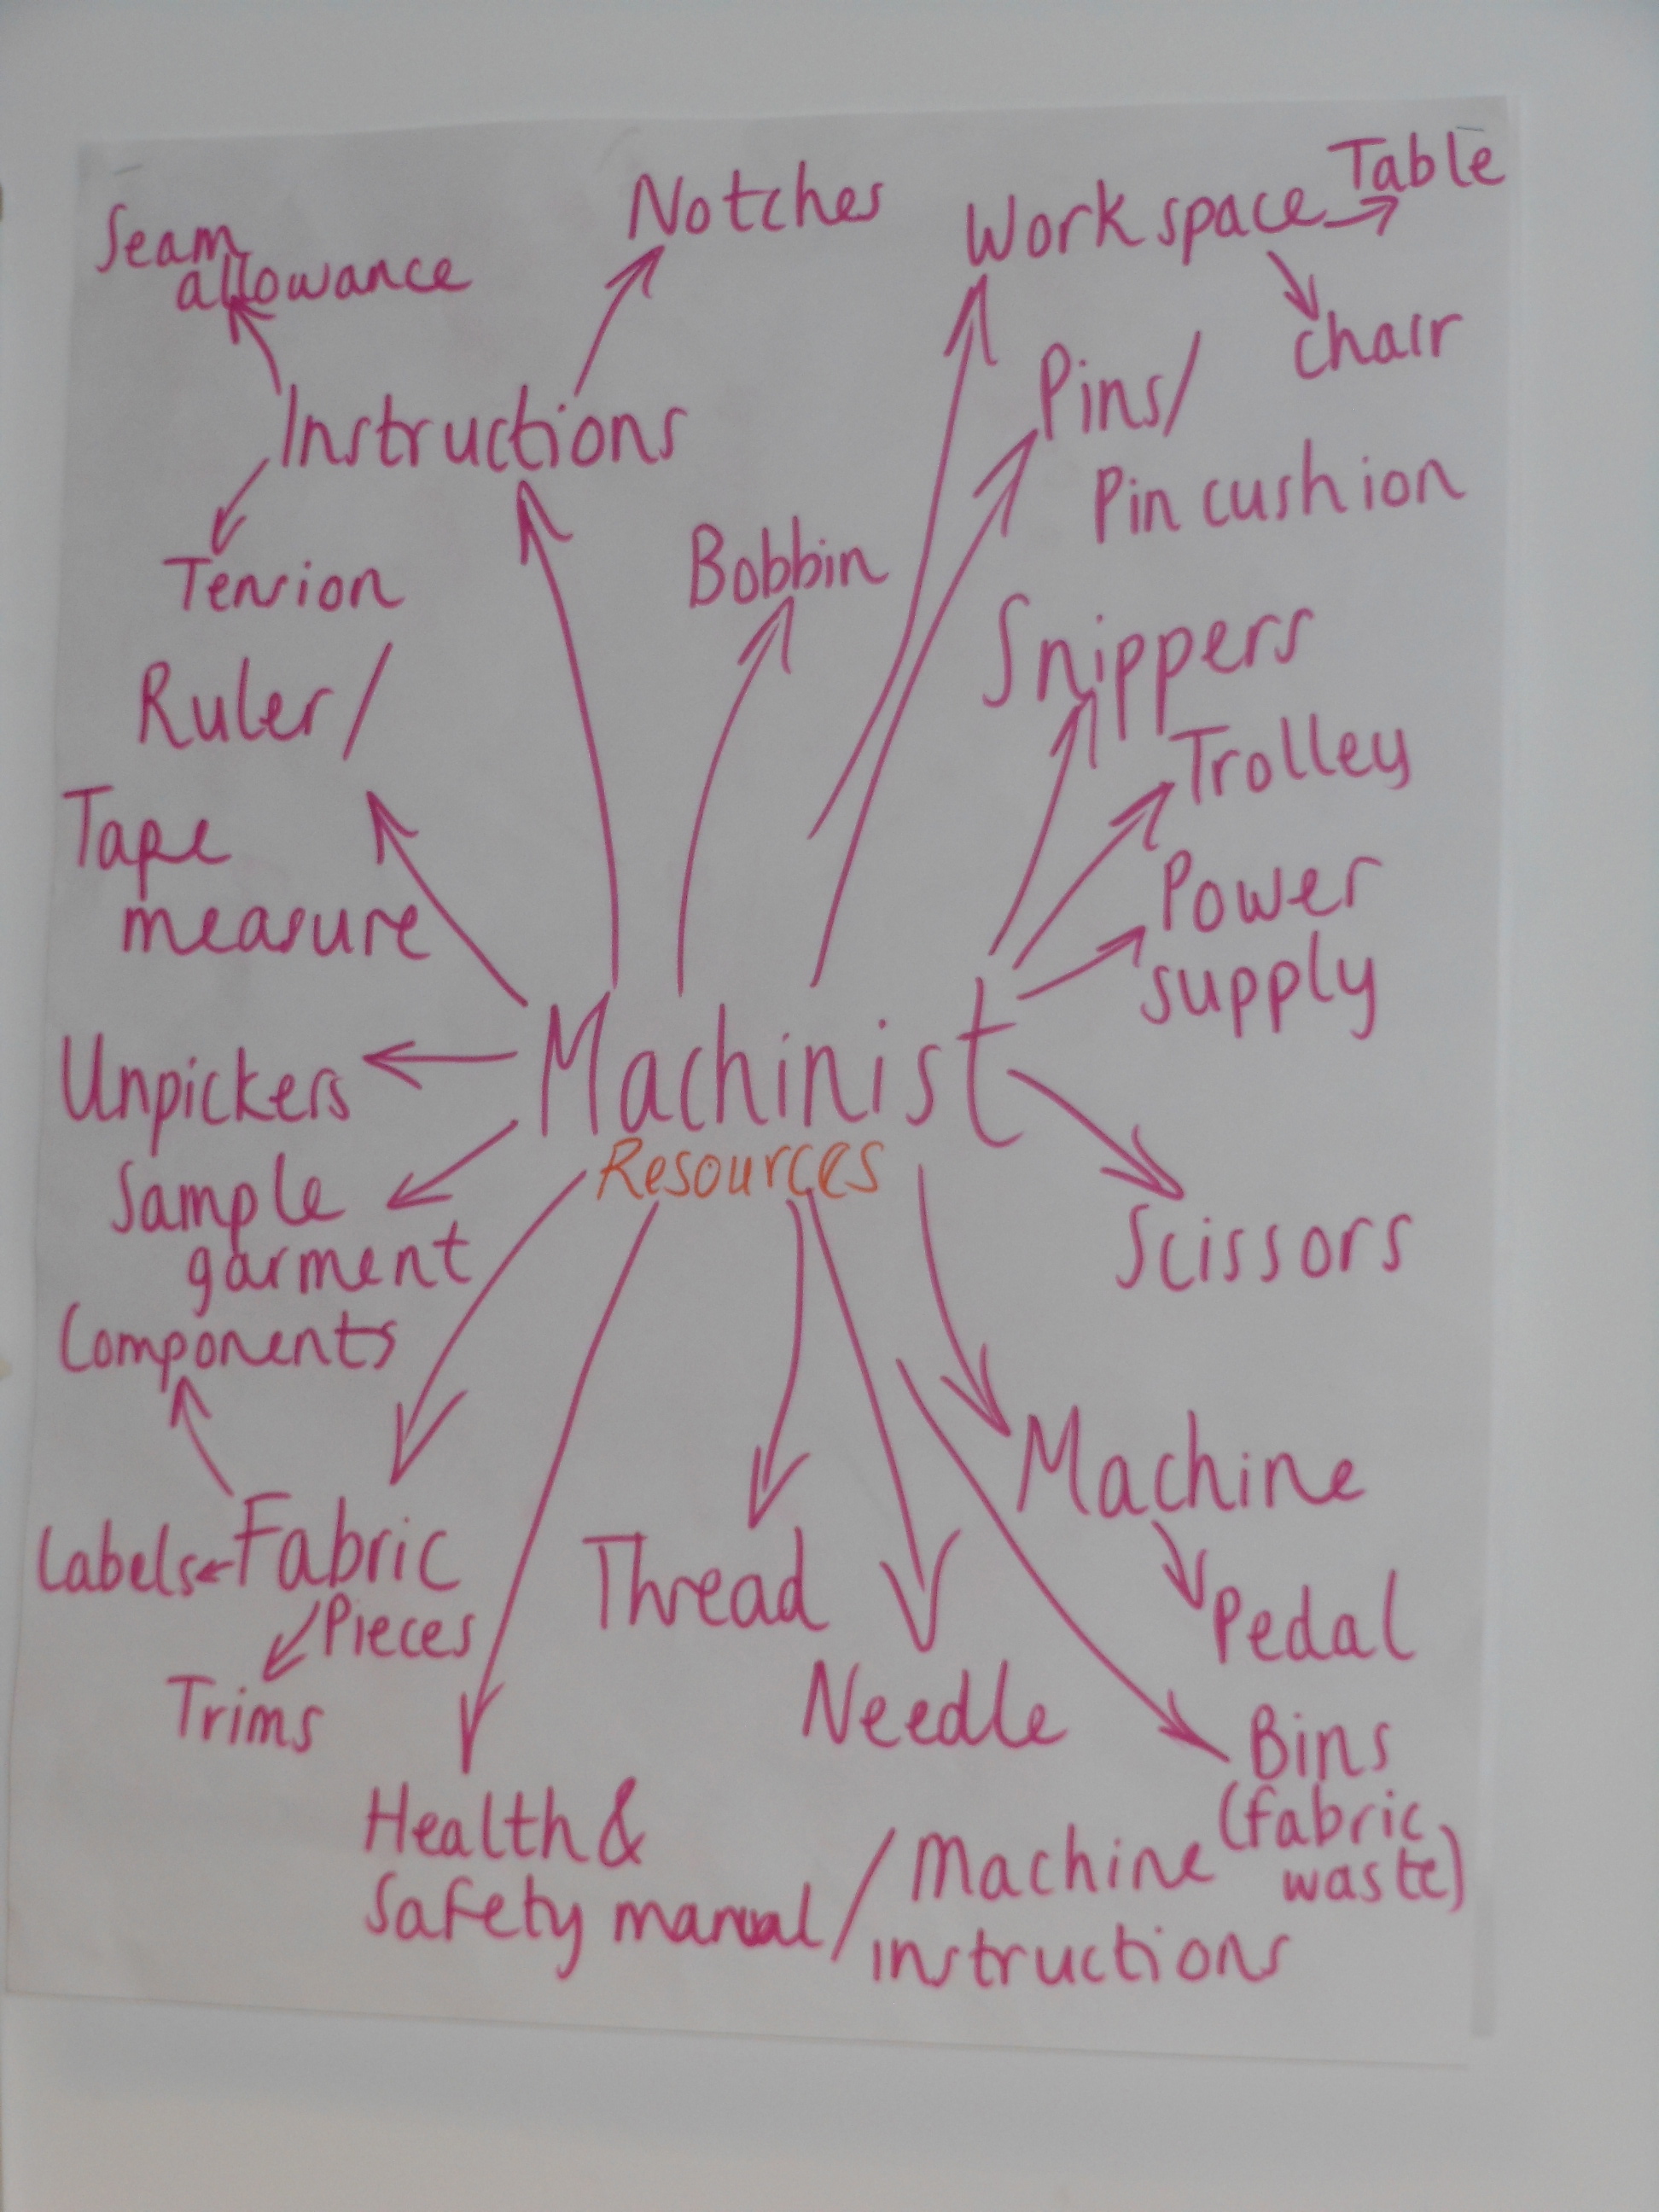 Seam
allowance
Notches
Work space
Table
chair
Instructions
Pins/
Pin cushion
Tension
Bobbin
Snippers
Ruler/
Tape
measure
Trolley
Power
supply
Machinist
Resources
Unpickers
Sample
garment
Scissors
Components
Labels
Fabric
Pieces
Trims
Thread
Needle
Machine
Pedal
Bins
(fabric
waste)
Health &
Safety manual/
Machine
instructions